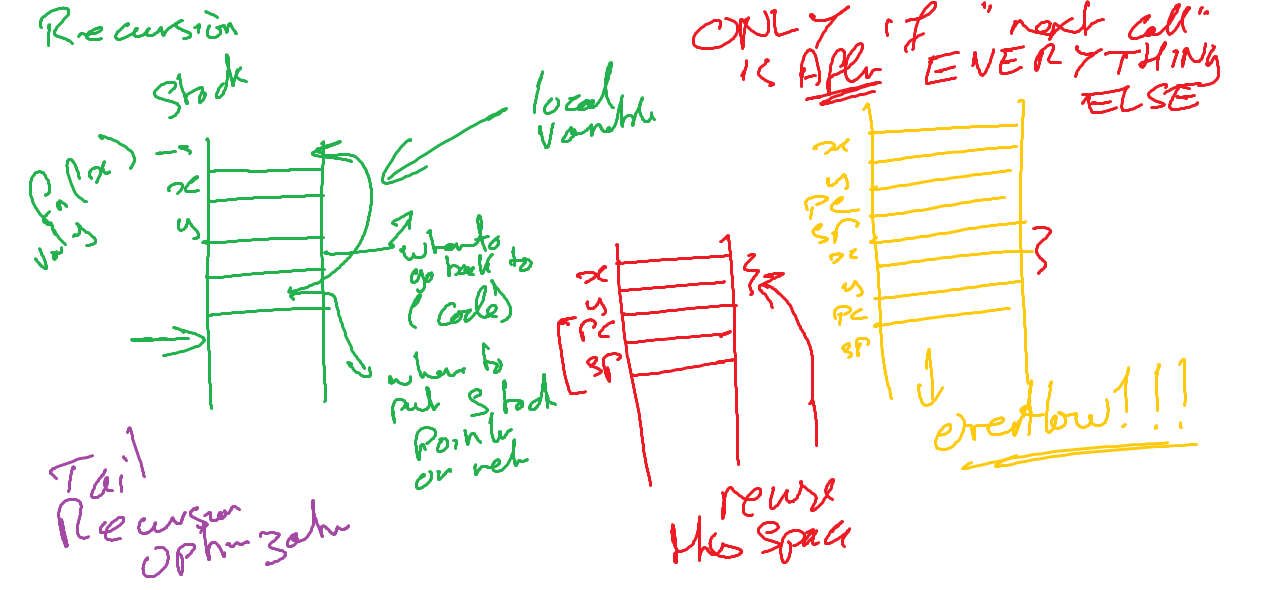 Recursion
Stack
fn(x)
var y
x
y
local
variable
where to
go back to
(code)
where to
put stack
pointer
on ret
Tail
Recursion
Optimization
x
y
PC
SP
reuse
this space
ONLY if "next call"
is After EVERYTHING
ELSE
x
y
PC
SP
x
y
PC
SP
overflow!!!